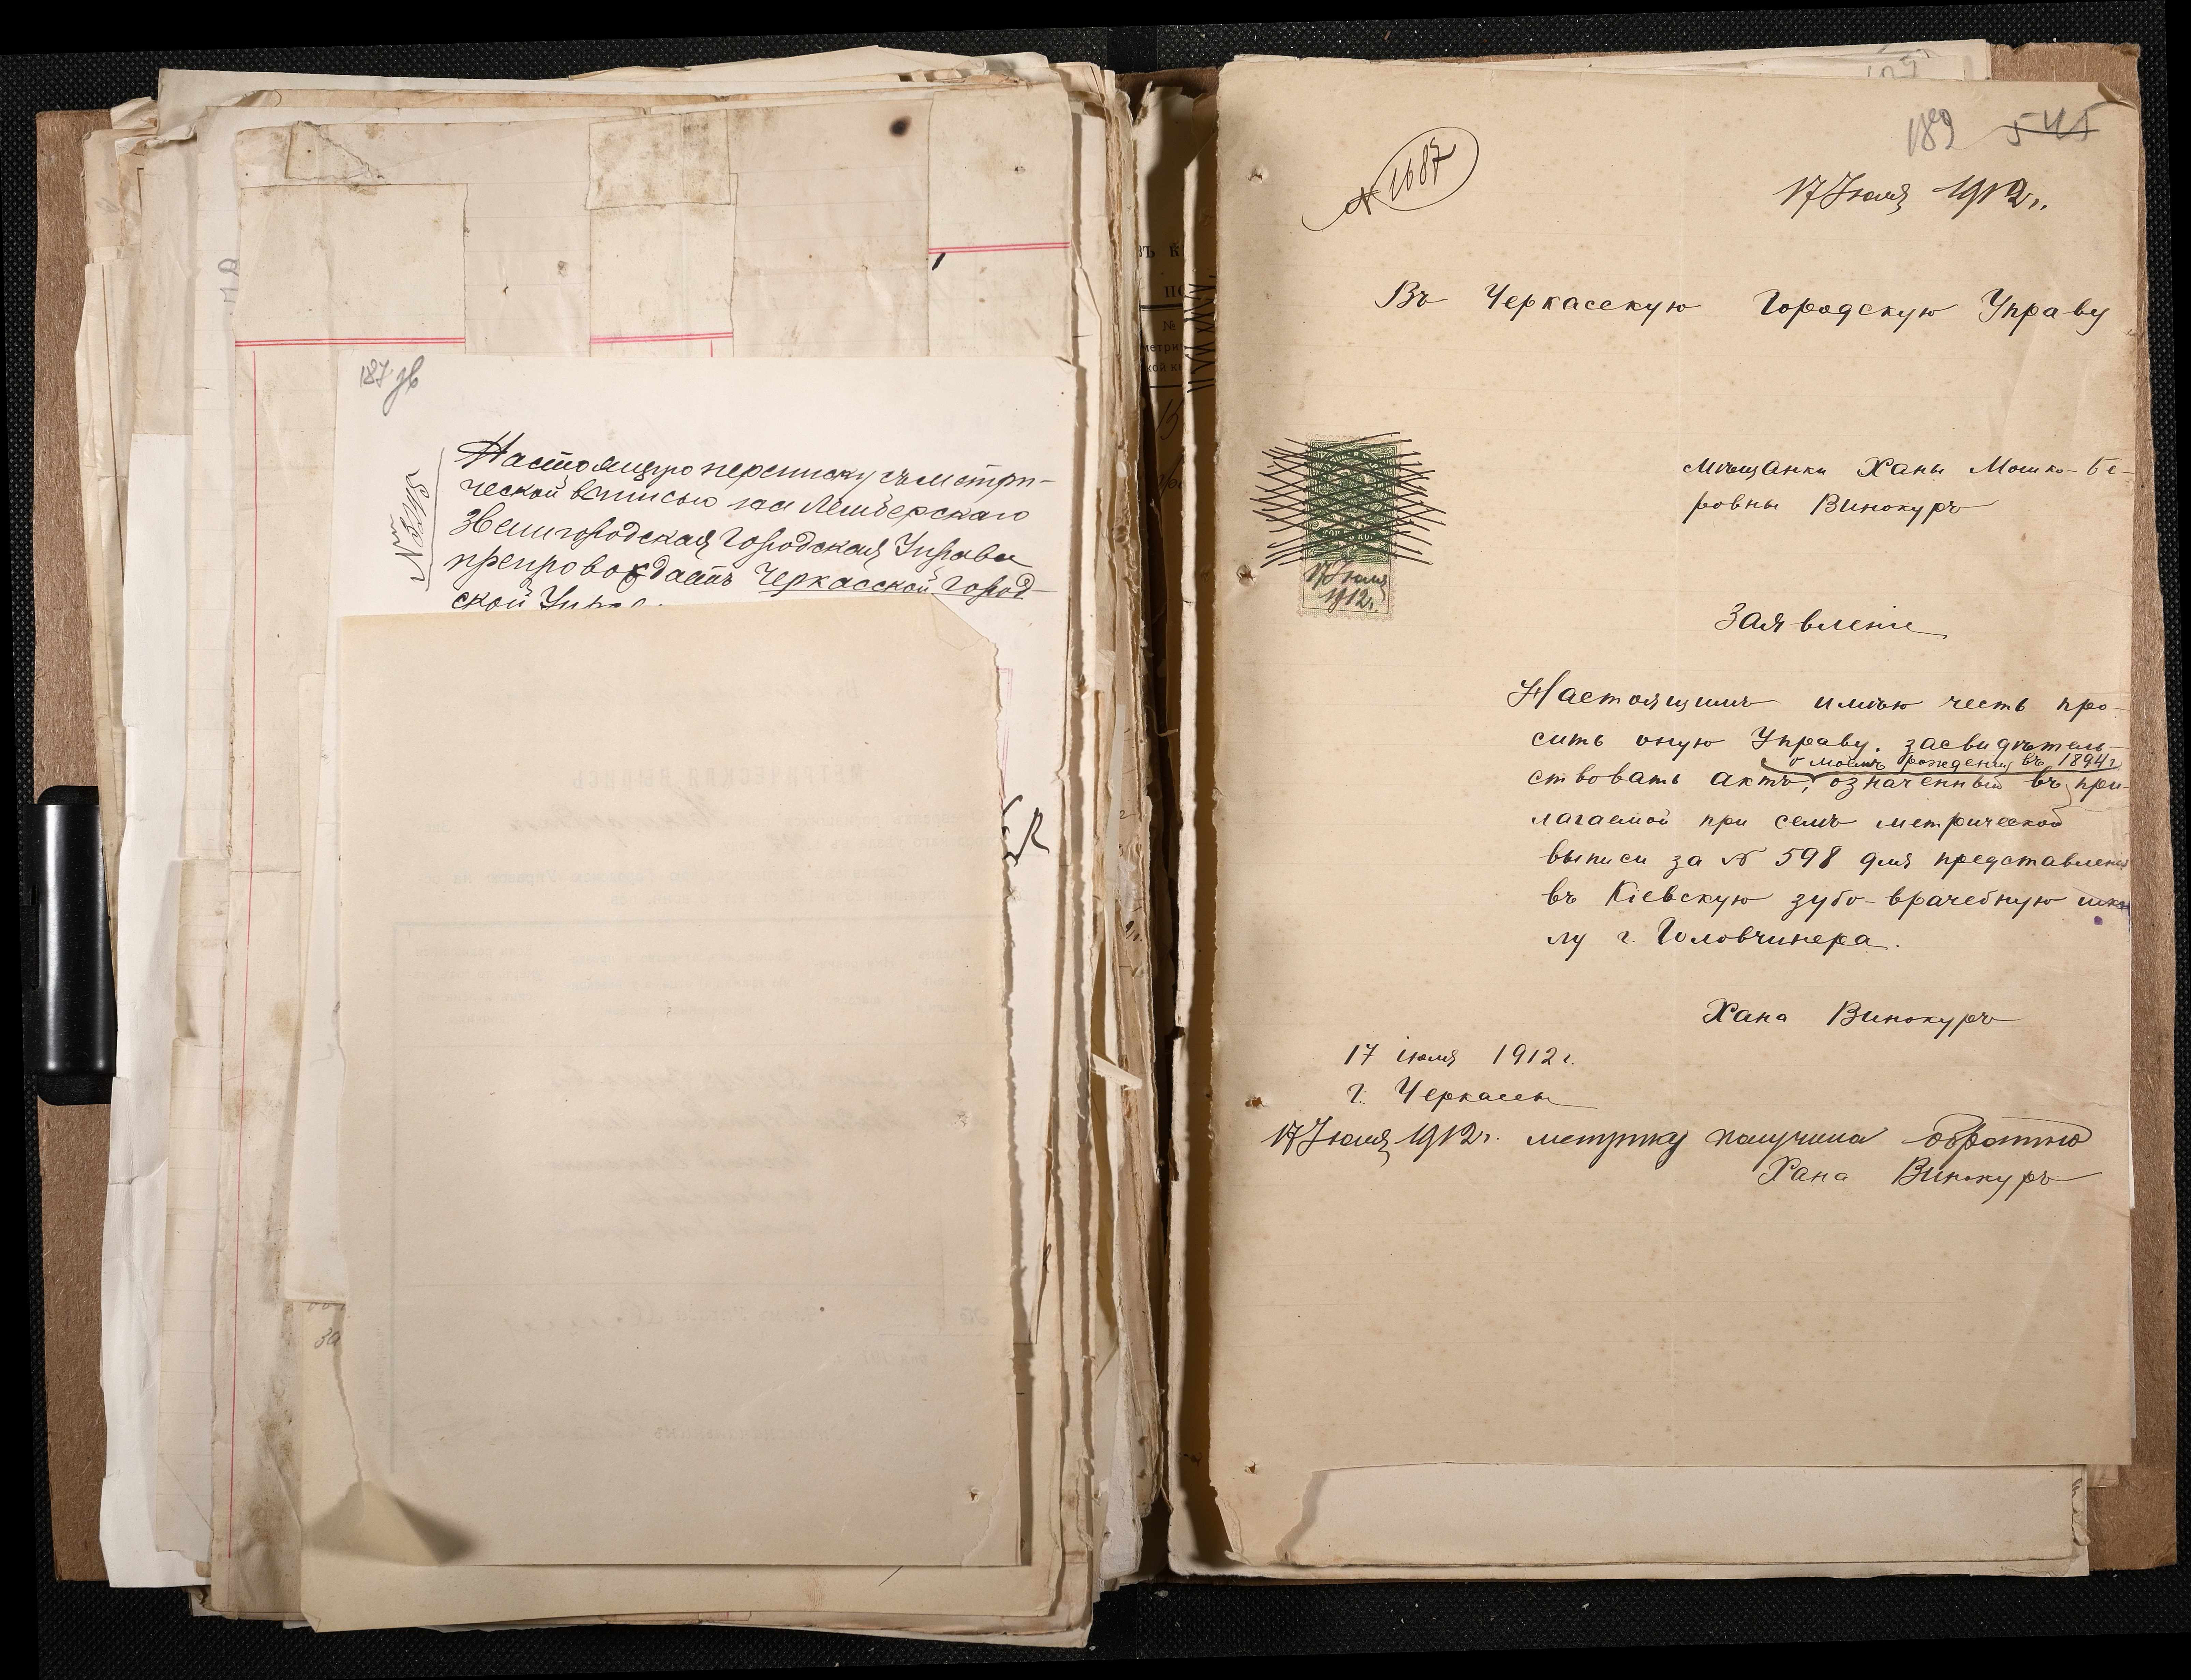 187 об
Настоящую переписку съ метри-
ческой выписью на Лемберскаго
Звенигородская Городская Управа
препровождаетъ Черкасской Город-
ской Управ
189 545
№ 1687
17 Іюля 1912 г.
Въ Черкасскую Городскую Управу
Мѣщанки Ханы Мошко-Бе-
ровны Винокуръ
17 Іюля
1912 г.
Заявленіе
Настоящимъ имѣю честь про-
сить оную Управу засвидѣтель-
о моемъ рожденіи въ 1894 г.
ствовать актъ, означенный въ при-
лагаемой при семъ метрической
выписи за № 598 для представленія
въ Кіевскую зубо-врачебную шко-
лу г. Головчинера.
Хана Винокуръ
17 іюля 1912 г.
г. Черкассы
17 Іюля 1912 г. метрику получила обратно
Хана Винокуръ